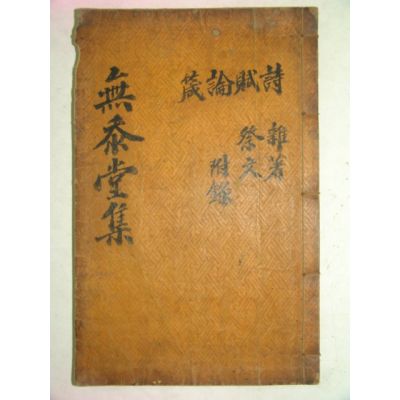 詩賦論箴
雜著
祭文
附錄
無忝堂集